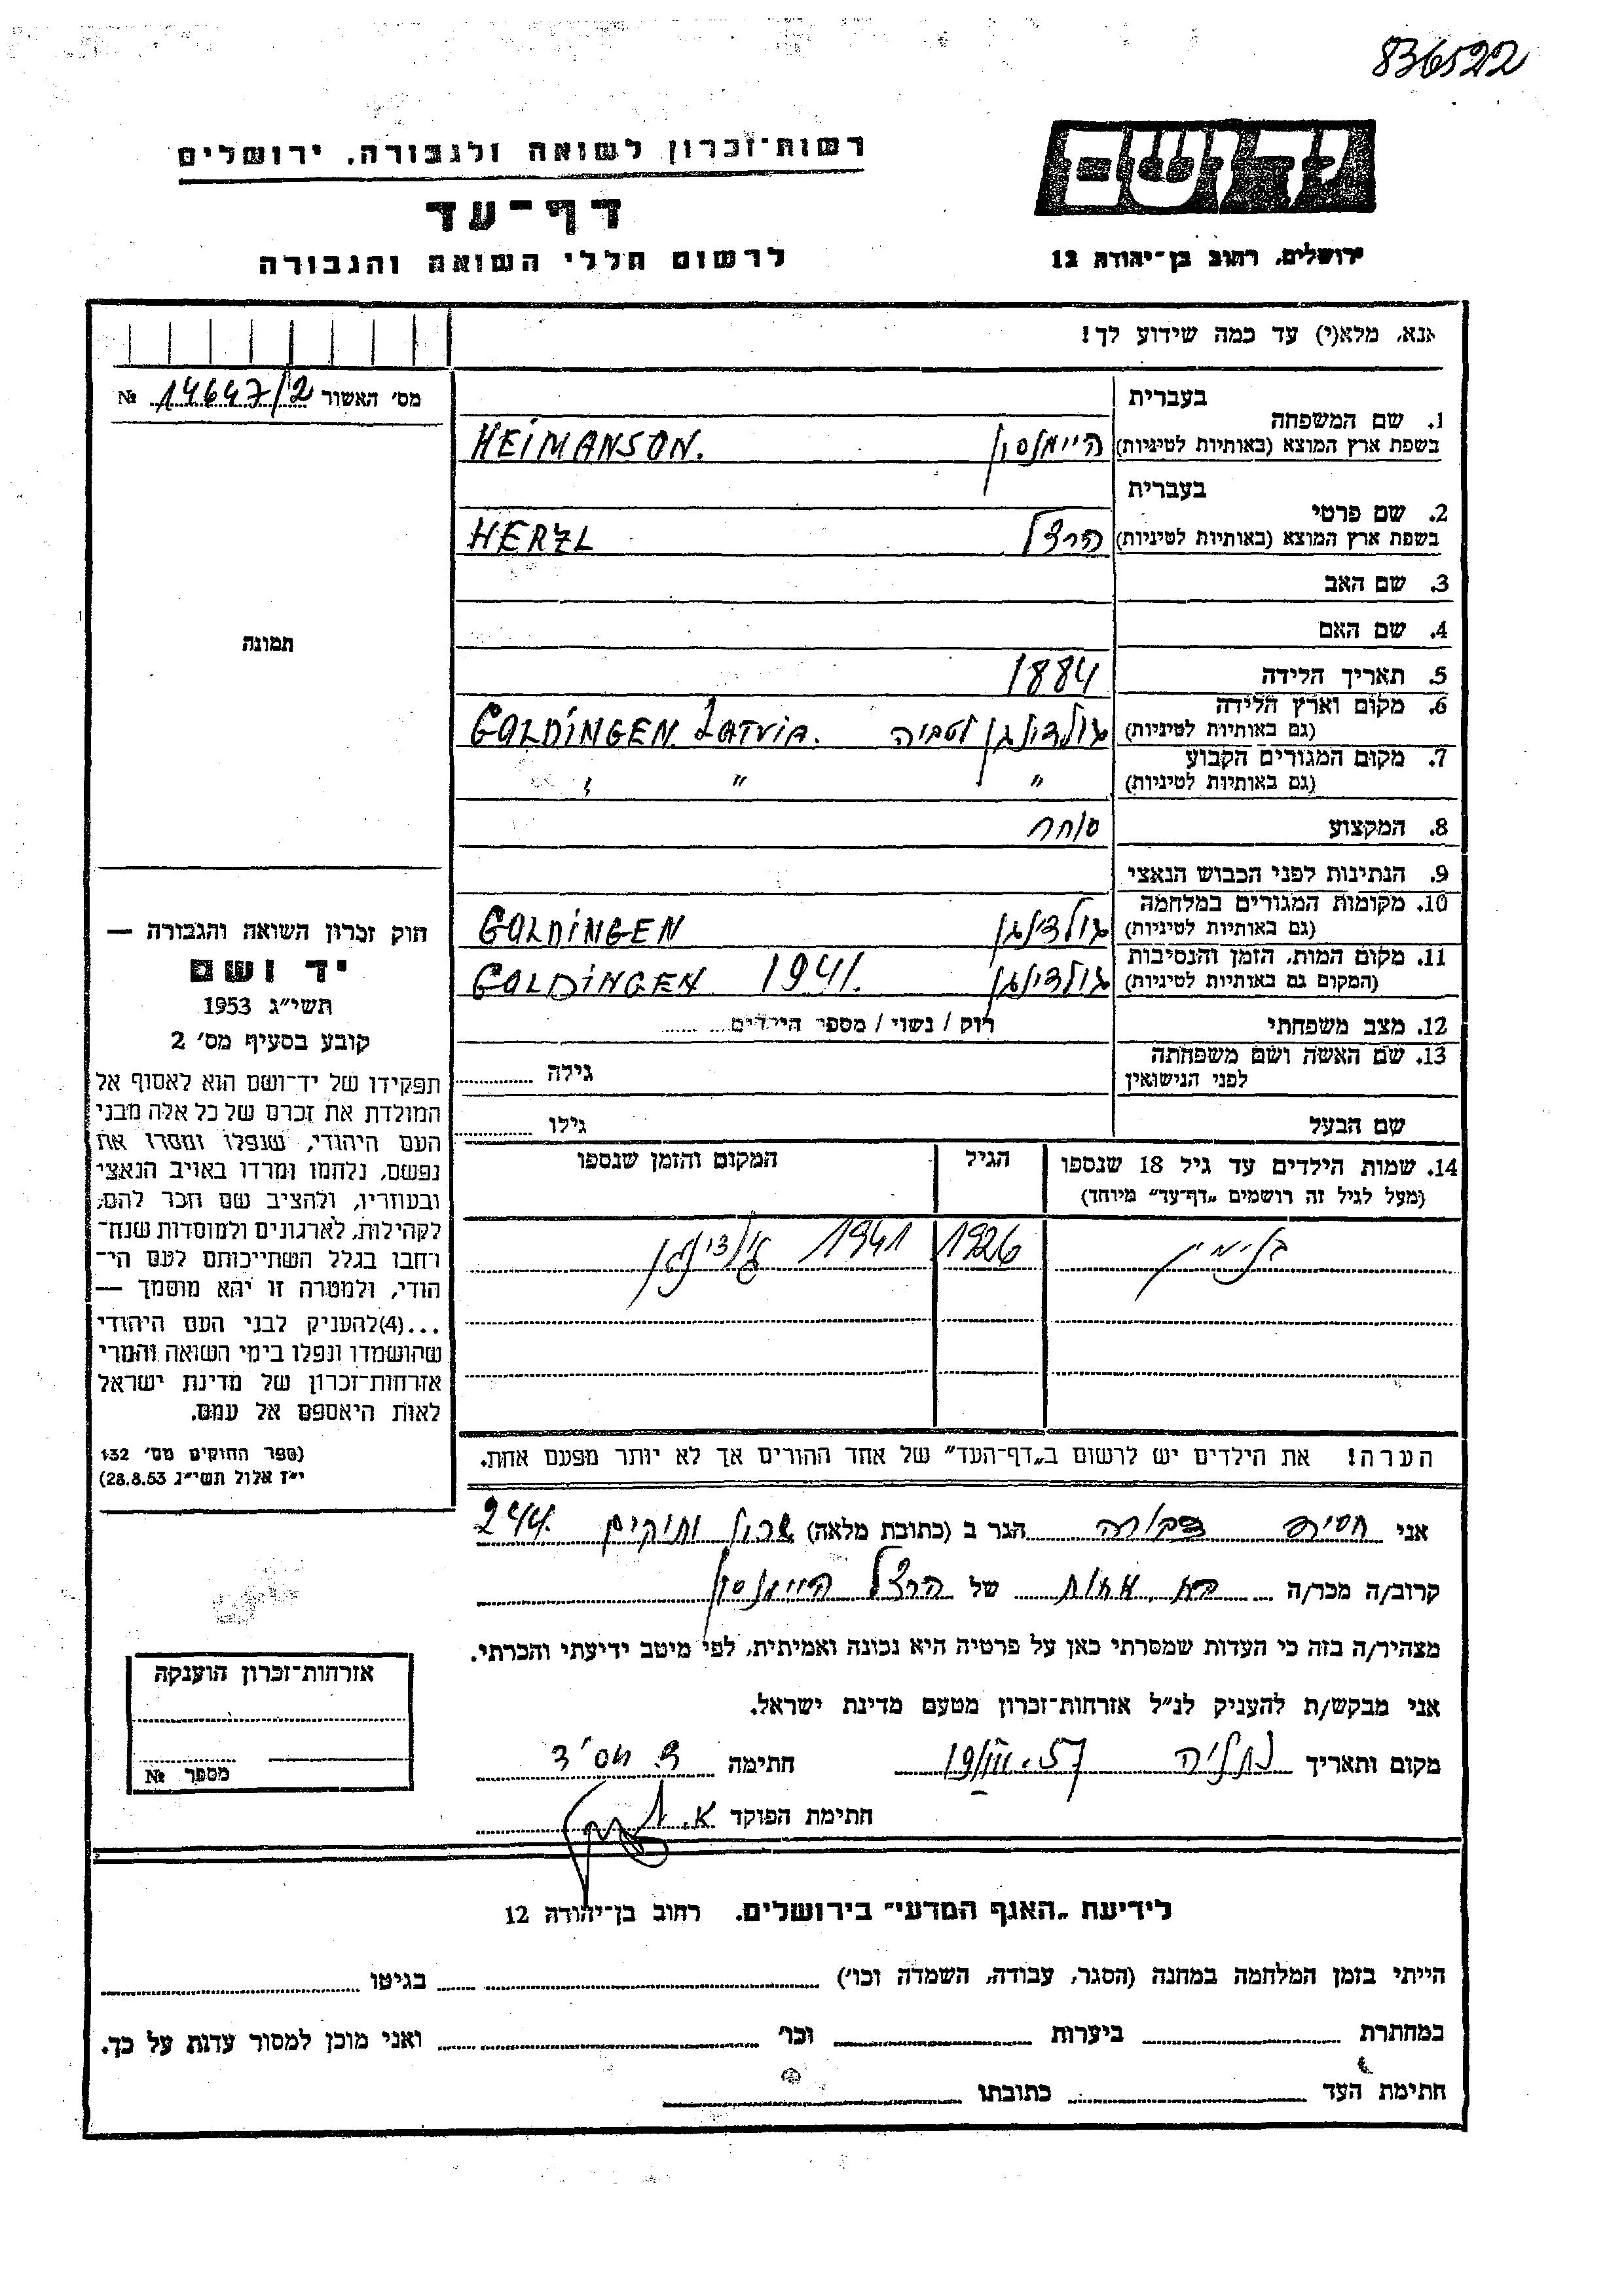 836522
רשות־זכרון לשואה ולגבורה, ירושלים
יד ושם
דף־עד
לרשום חללי השואה והגבורה
ירושלים, רחוב בן־יהודה 12
אנא, מלא(י) עד כמה שידוע לך!
מס׳ האשור 14647/2 №
בעברית
1. שם המשפחה
בשפת ארץ המוצא (באותיות לטיניות) היימנסון HEIMANSON.
בעברית
2. שם פרטי
בשפת ארץ המוצא (באותיות לטיניות) הרצל HERZL
3. שם האב
4. שם האם
תמונה
5. תאריך הלידה 1884
6. מקום וארץ הלידה
(גם באותיות לטיניות) גולדינגן לטביה GOLDINGEN. LATVIA.
7. מקום המגורים הקבוע
(גם באותיות לטיניות) " " "
8. המקצוע סוחר
9. הנתינות לפני הכבוש הנאצי
10. מקומות המגורים במלחמה
(גם באותיות לטיניות) גולדינגן GOLDINGEN
11. מקום המות, הזמן והנסיבות
(המקום גם באותיות לטיניות) גולדינגן 1941. GOLDINGEN
12. מצב משפחתי רוק / נשוי / מספר הילדים
13. שם האשה ושם משפחתה
לפני הנישואין גילה
שם הבעל גילו
14. שמות הילדים עד גיל 18 שנספו הגיל המקום והזמן שנספו
(מעל לגיל זה רושמים „דף־עד״ מיוחד)
בנימין 1926 1941 גולדינגן
הערה! את הילדים יש לרשום ב„דף־העד״ של אחד ההורים אך לא יותר מפעם אחת.
חוק זכרון השואה והגבורה —
יד ושם
תשי״ג 1953
קובע בסעיף מס׳ 2
תפקידו של יד־ושם הוא לאסוף אל
המולדת את זכרם של כל אלה מבני
העם היהודי, שנפלו ומסרו את
נפשם, נלחמו ומרדו באויב הנאצי
ובעוזריו, ולהציב שם וזכר להם,
לקהילות, לארגונים ולמוסדות שנח־
רחבו בגלל השתייכותם לעם הי־
הודי, ולמטרה זו יהא מוסמך —
...(4)להעניק לבני העם היהודי
שהושמדו ונפלו בימי השואה והמרי
אזרחות־זכרון של מדינת ישראל
לאות היאספם אל עמם.
(ספר החוקים מס׳ 132
י״ז אלול תשי״ג 28.8.53)
אני דבורה הגר ב (כתובת מלאה) ותיקים 244.
קרוב/ה מכר/ה של הרצל היימנסון
מצהיר/ה בזה כי העדות שמסרתי כאן על פרטיה היא נכונה ואמיתית, לפי מיטב ידיעתי והכרתי.
אני מבקש/ת להעניק לנ״ל אזרחות־זכרון מטעם מדינת ישראל.
מקום ותאריך נתניה 19/III.57 חתימה
חתימת הפוקד
אזרחות־זכרון הוענקה
מספר №
לידיעת „האגף המדעי״ בירושלים. רחוב בן־יהודה 12
הייתי בזמן המלחמה במחנה (הסגר, עבודה, השמדה וכו׳) בגיטו
במחתרת ביערות וכו׳ ואני מוכן למסור עדות על כך.
חתימת העד כתובתו